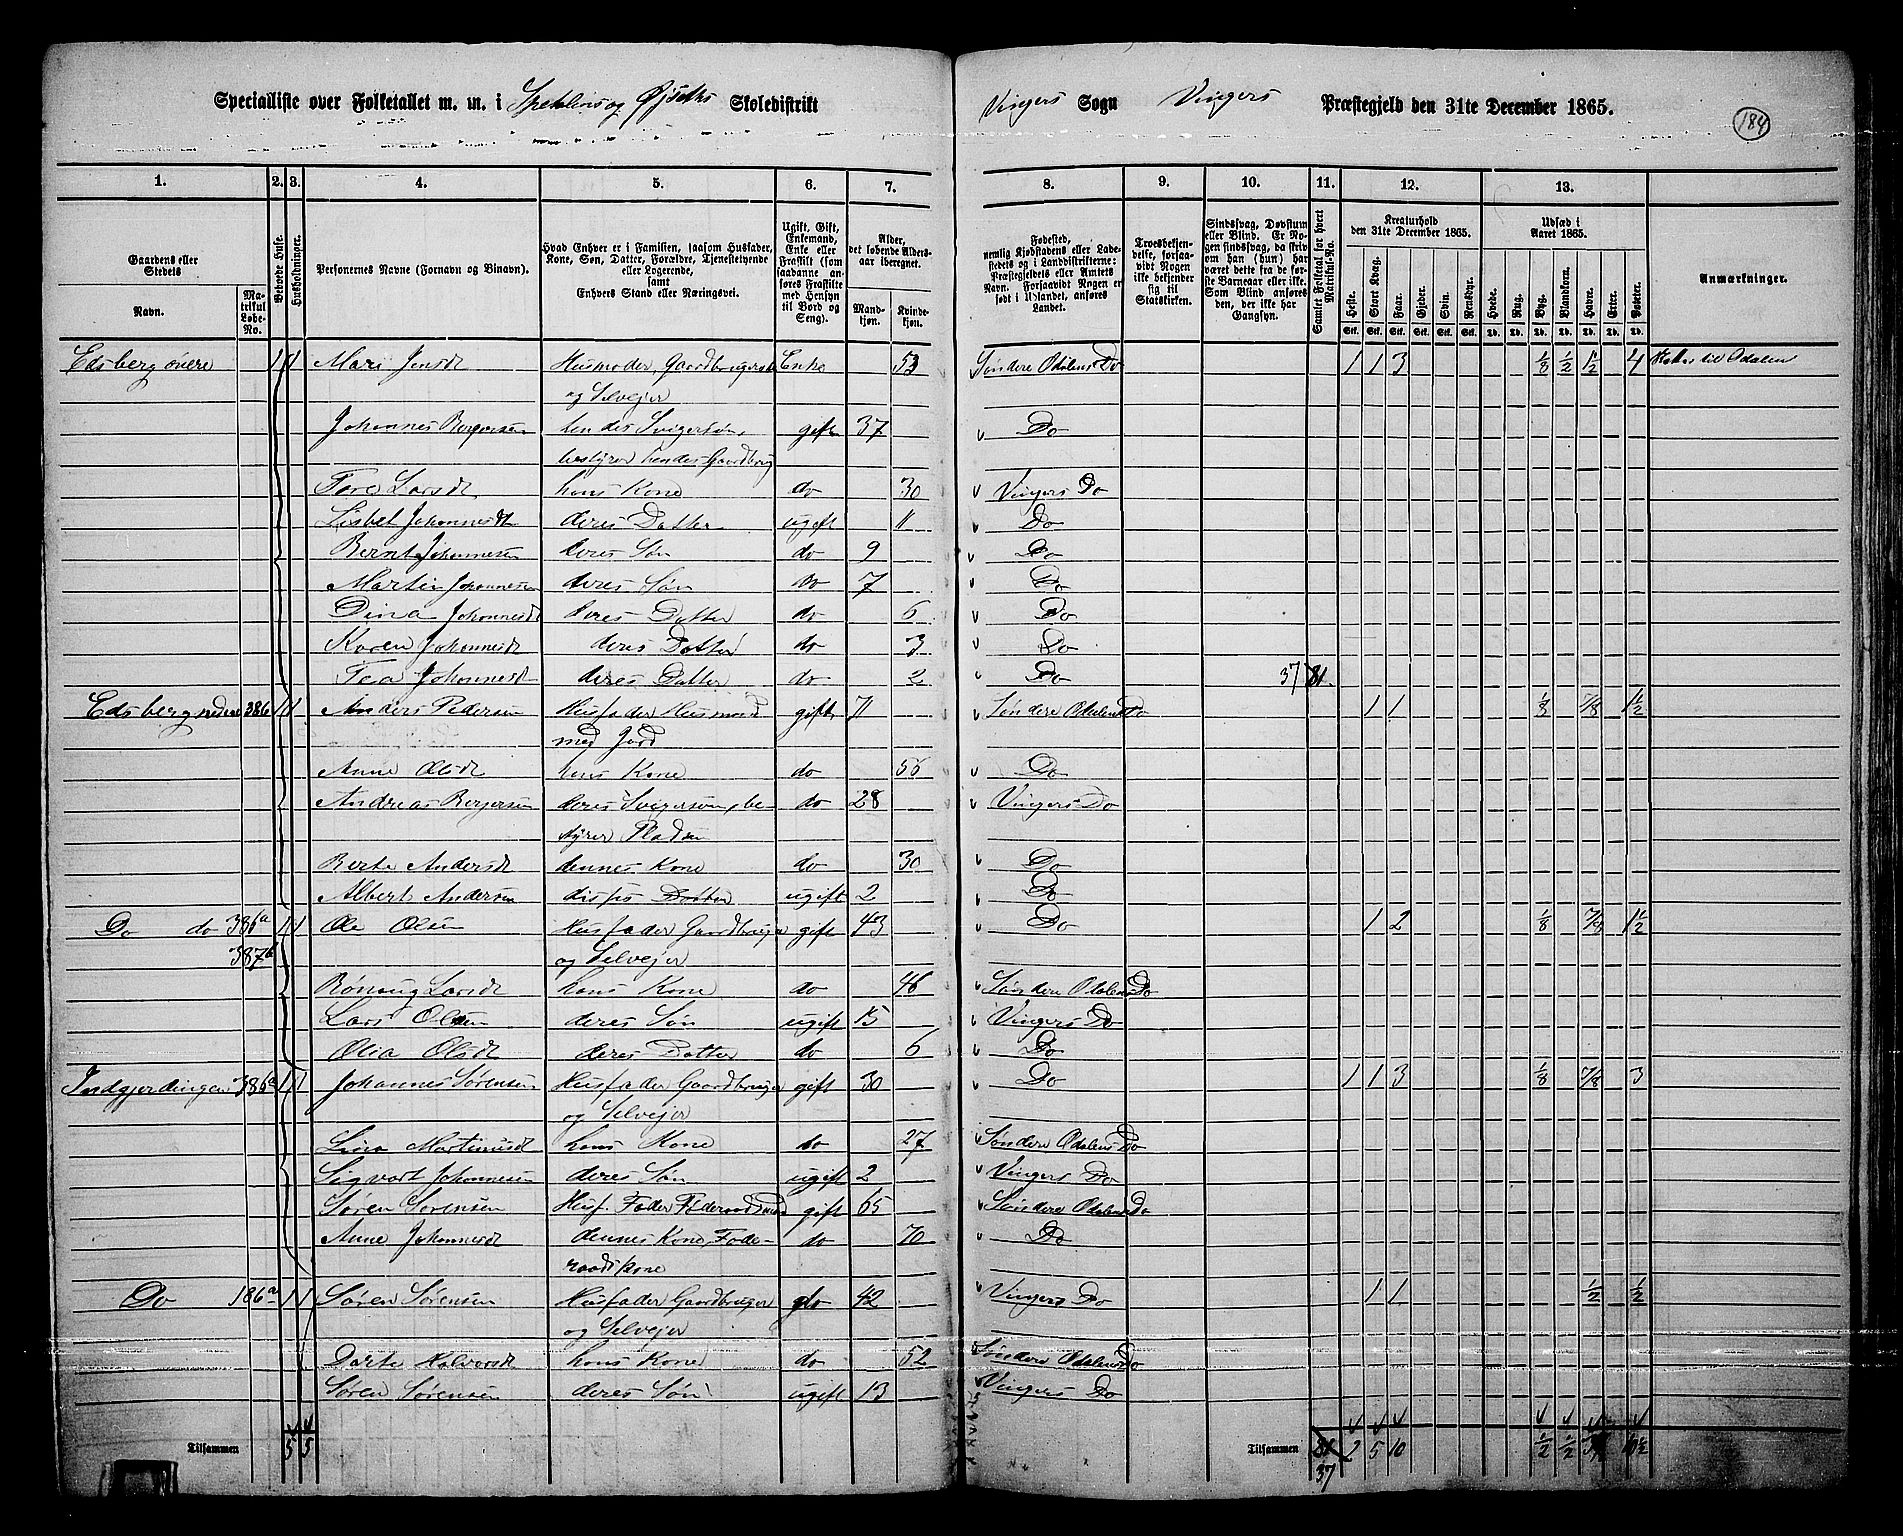 Specialliste over Folketallet m. m. i Spetalens og Øjseths Skoledistrikt Vingers Sogn Vingers Præstegjeld den 31te December 1865.
184
1. 2. 3. 4. 5. 6. 7. 8. 9. 10. 11. 12. 13.
Gaardens eller Stedets
Navn.
Matrikul Løbe-No.
Beboede Huse.
Husholdninger.
Personernes Navne (Fornavn og Binavn).
Hvad Enhver er i Familien, saasom Husfader, Kone, Søn, Datter, Forældre, Tjenestetyende eller Logerende, samt Enhvers Stand eller Næringsvei.
Ugift, Gift, Enkemand, Enke eller Fraskilt (som saadanne anføres Fraskilte med Hensyn til Bord og Seng).
Alder, det løbende Aldersaar iberegnet.
Mandkjøn. Kvindekjøn.
Fødested, nemlig Kjøbstadens eller Ladestedets og i Landdistrikterne: Præstegjeldets eller Amtets Navn. Forsaavidt Nogen er født i Udlandet, anføres Landet.
Troesbekjendelse, forsaavidt Nogen ikke bekjender sig til Statskirken.
Sindssvag, Døvstum eller Blind. Er Nogen sindssvag, da skriv om han (hun) har været dette fra de første Barneaar eller ikke. Som Blind anføres den, der ikke har Gangsyn.
Samlet Folketal for hvert Matrikul-No.
Kreaturhold den 31te December 1865.
Heste. Stort Kvæg. Faar. Gjeder. Svin. Rensdyr.
Udsæd i Aaret 1865.
Hvede. Rug. Byg. Blandkorn. Havre. Erter. Poteter.
Anmærkninger.
Edsberg øvre 1 1 Mari Jensdt Husmoder, Gaardbrugerske Enke 53 Søndre Odalens Do 1 1 3 1/8 1/2 1 1/2 4
og Selvejer
Johannes Bergersen hendes Svigersøn, gift 37 Do
bestyrer hendes Gaardbrug
Tore Larsdt hans Kone do 30 Vingers Do
Lisbet Johannesdt deres Datter ugift 11 Do
Bernt Johannesen deres Søn do 9 Do
Martin Johannesen deres Søn do 7 Do
Dina Johannesdt deres Datter do 6 Do
Karen Johannesdt deres Datter do 3 Do
Tea Johannesdt deres Datter do 2 Do 37
Edsberg nedre 386 1 1 Anders Pedersen Husfader Husmand gift 71 Søndere Odalens Do 1 1 1/8 7/8 1 1/2
med Jord
Anne Olsdt hans Kone do 55 Do
Andreas Bergersen deres Svigersøn, be- do 28 Vingers Do
styrer Pladsen
Berte Andersdt dennes Kone do 30 Do
Albert Andersen disses Datter ugift 2 Do
Do do 386a 1 1 Ole Olsen Husfader Gaardbruger gift 43 Do 1 2 1/8 7/8 1 1/2
387b og Selvejer
Rønnug Larsdt hans Kone do 46 Søndere Odalens Do
Lars Olsen deres Søn ugift 15 Vingers Do
Olia Olsdt deres Datter do 6 Do
Indgjerdingen 386a 1 1 Johannes Sørensen Husfader Gaardbruger gift 30 Do 1 1 3 1/8 7/8 3
og Selvejer
Lina Martinusdt hans Kone do 27 Søndere Odalens Do
Sigvart Johannesen deres Søn ugift 2 Vingers Do
Søren Sørensen Husf. Fader Føderaadsmand gift 65 Søndere Odalens Do
Anne Johannesdt dennes Kone, Føde- do 70 Do
raadskone
Do 186a 1 1 Søren Sørensen Husfader Gaardbruger do 42 Vingers Do 1 1 1/2 1/2
og Selvejer
Dorte Halvorsdt hans Kone do 52 Søndere Odalens Do
Søren Sørensen deres Søn ugift 13 Vingers Do
Tilsammen 5 5 Tilsammen 2 5 10 1/2 1/2 10 1/2
37